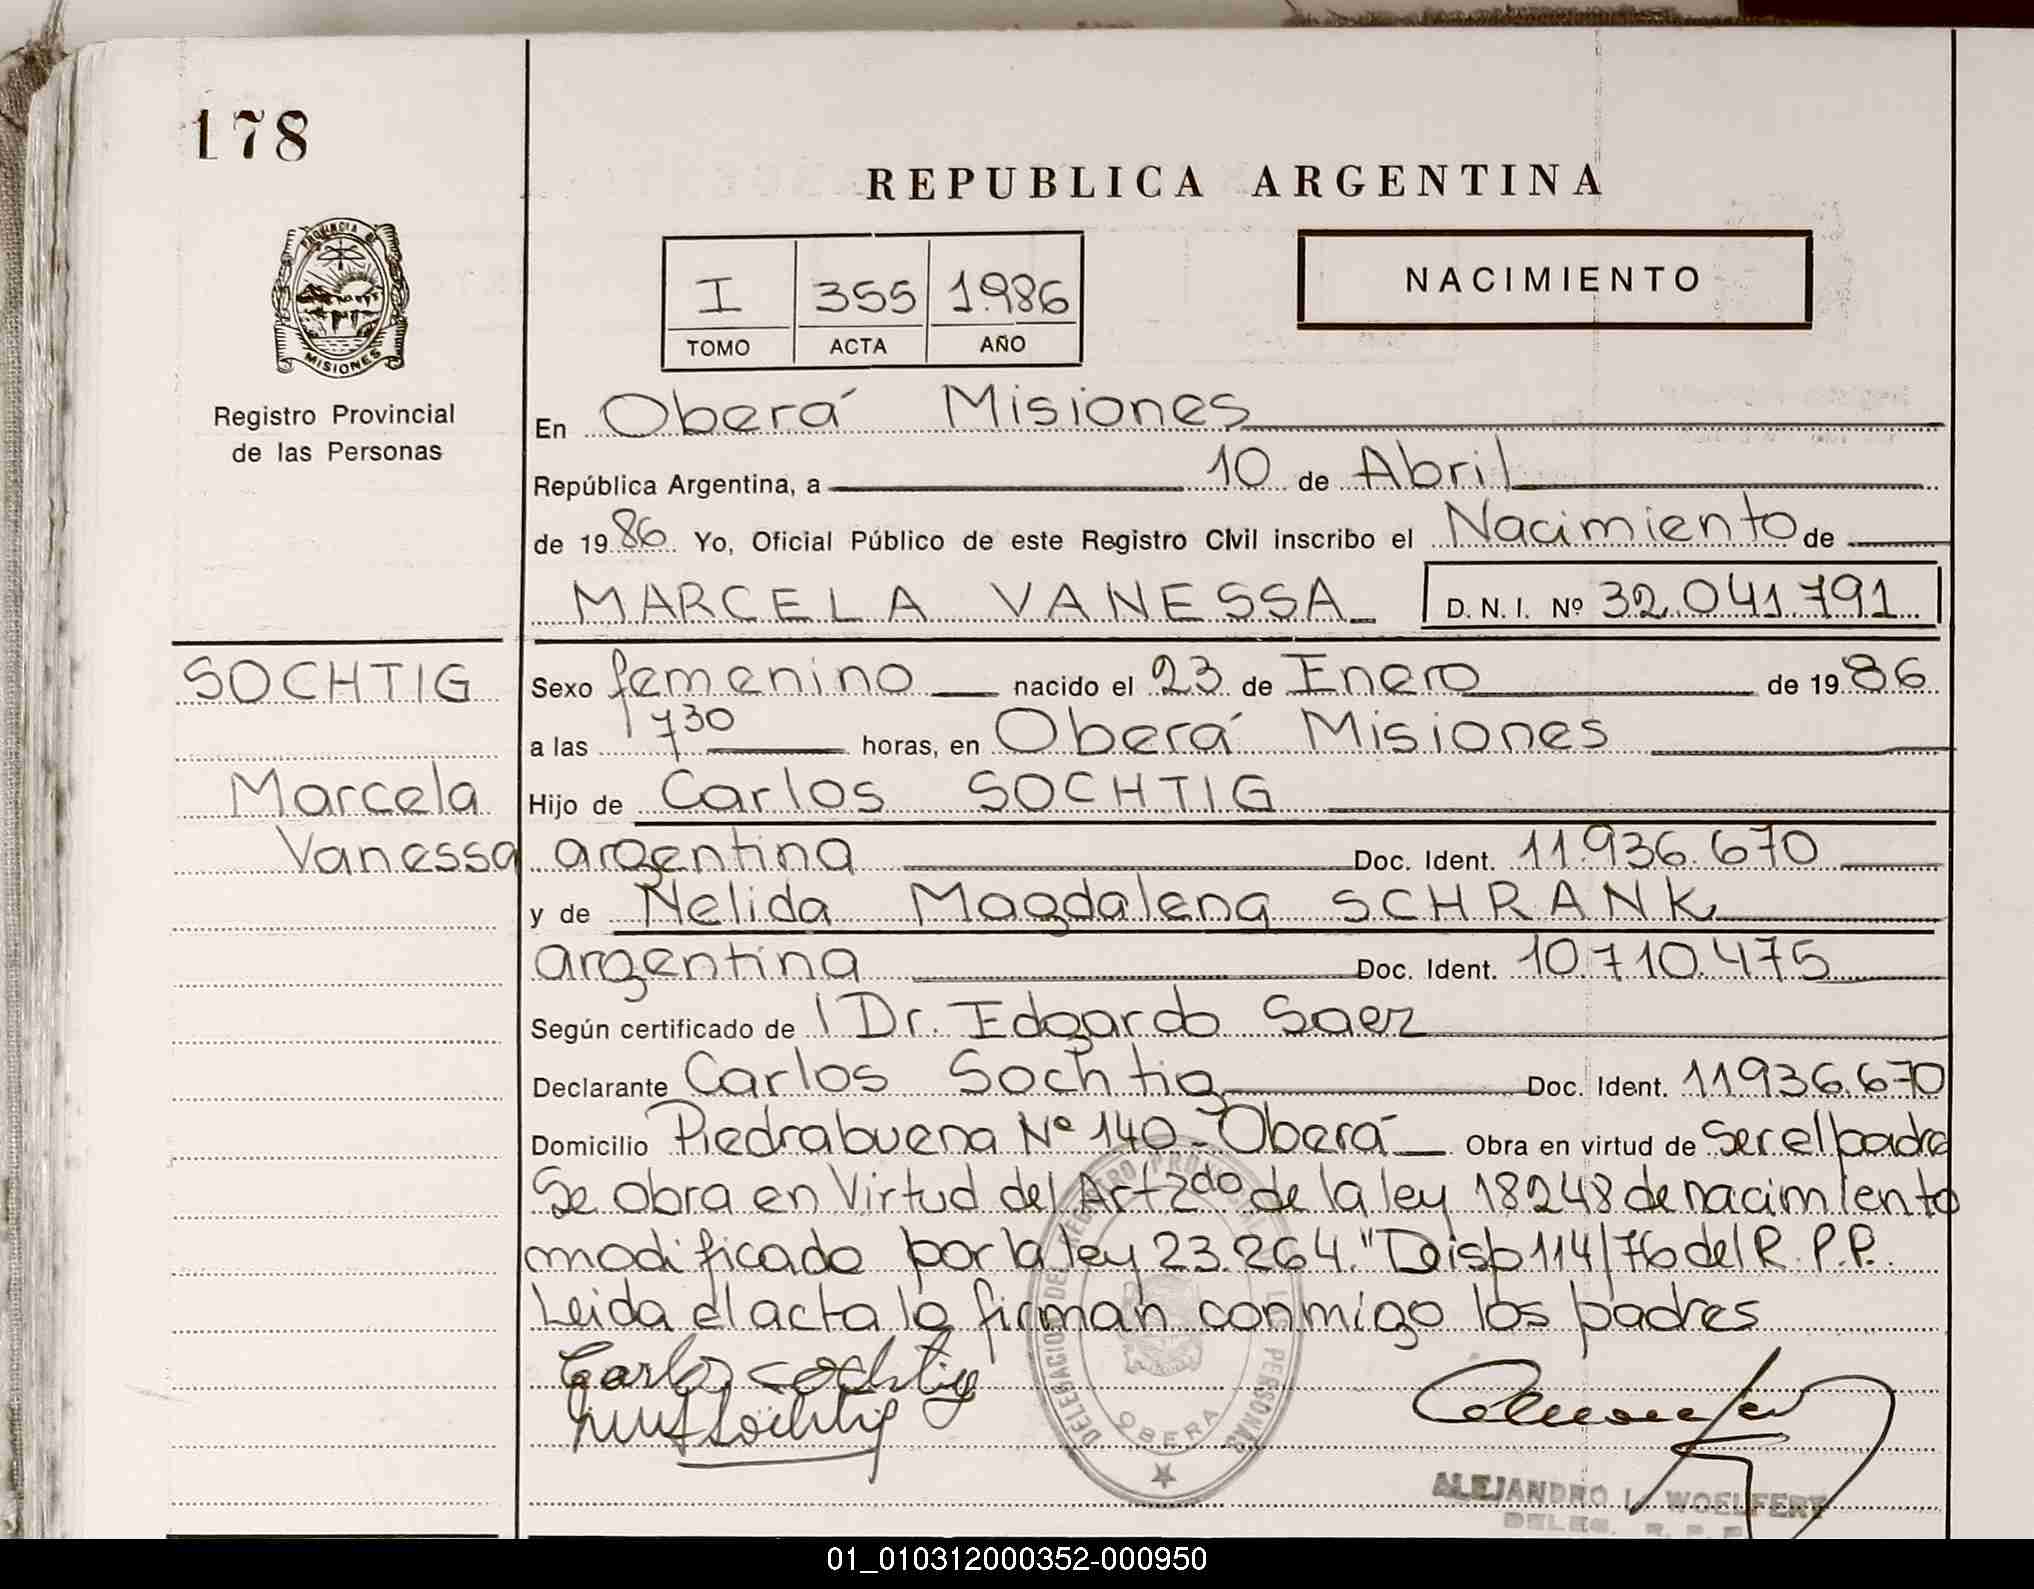 178
REPUBLICA ARGENTINA
PROVINCIA DE
MISIONES
Registro Provincial
de las Personas
I 355 1986
TOMO ACTA AÑO
NACIMIENTO
En Oberá Misiones
República Argentina, a 10 de Abril
de 1986 Yo, Oficial Público de este Registro Civil inscribo el Nacimiento de
MARCELA VANESSA D. N. I. Nº 32.041.791
SOCHTIG
Marcela
Vanessa
Sexo femenino nacido el 23 de Enero de 1986
a las 730 horas, en Oberá Misiones
Hijo de Carlos SOCHTIG
argentina Doc. Ident. 11.936.670
y de Nelida Magdalena SCHRANK
argentina Doc. Ident. 10.710.475
Según certificado de Dr. Edgardo Saez
Declarante Carlos Sochtig Doc. Ident. 11936.670
Domicilio Piedrabuena Nº 140 - Oberá Obra en virtud de Ser el padre
Se obra en Virtud del Art 2do de la ley 18248 de nacimiento
modificado por la ley 23.264. "Disp 114/76 del R. P. P.
Leida el acta la firman conmigo los padres
Carlos Sochtig
Sochtig
DELEGACION DEL REGISTRO PROVINCIAL DE LAS PERSONAS
OBERA
ALEJANDRO L. WOELFERT
DELEG. R. P. P.
01_010312000352-000950